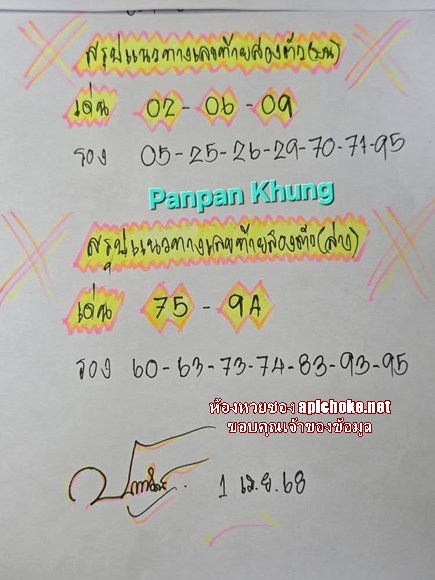 สรุปแนวทางเลขท้ายสองตัว(บน)
เด่น 02 - 06 - 09
รอง 05-25-26-29-70-71-95
Panpan Khung
สรุปแนวทางเลขท้ายสองตัว(ล่าง)
เด่น 75 - 94
รอง 60-63-73-74-83-93-95
ห้องหวยซอง apichoke.net
ขอบคุณเจ้าของข้อมูล
1 เม.ย. 68